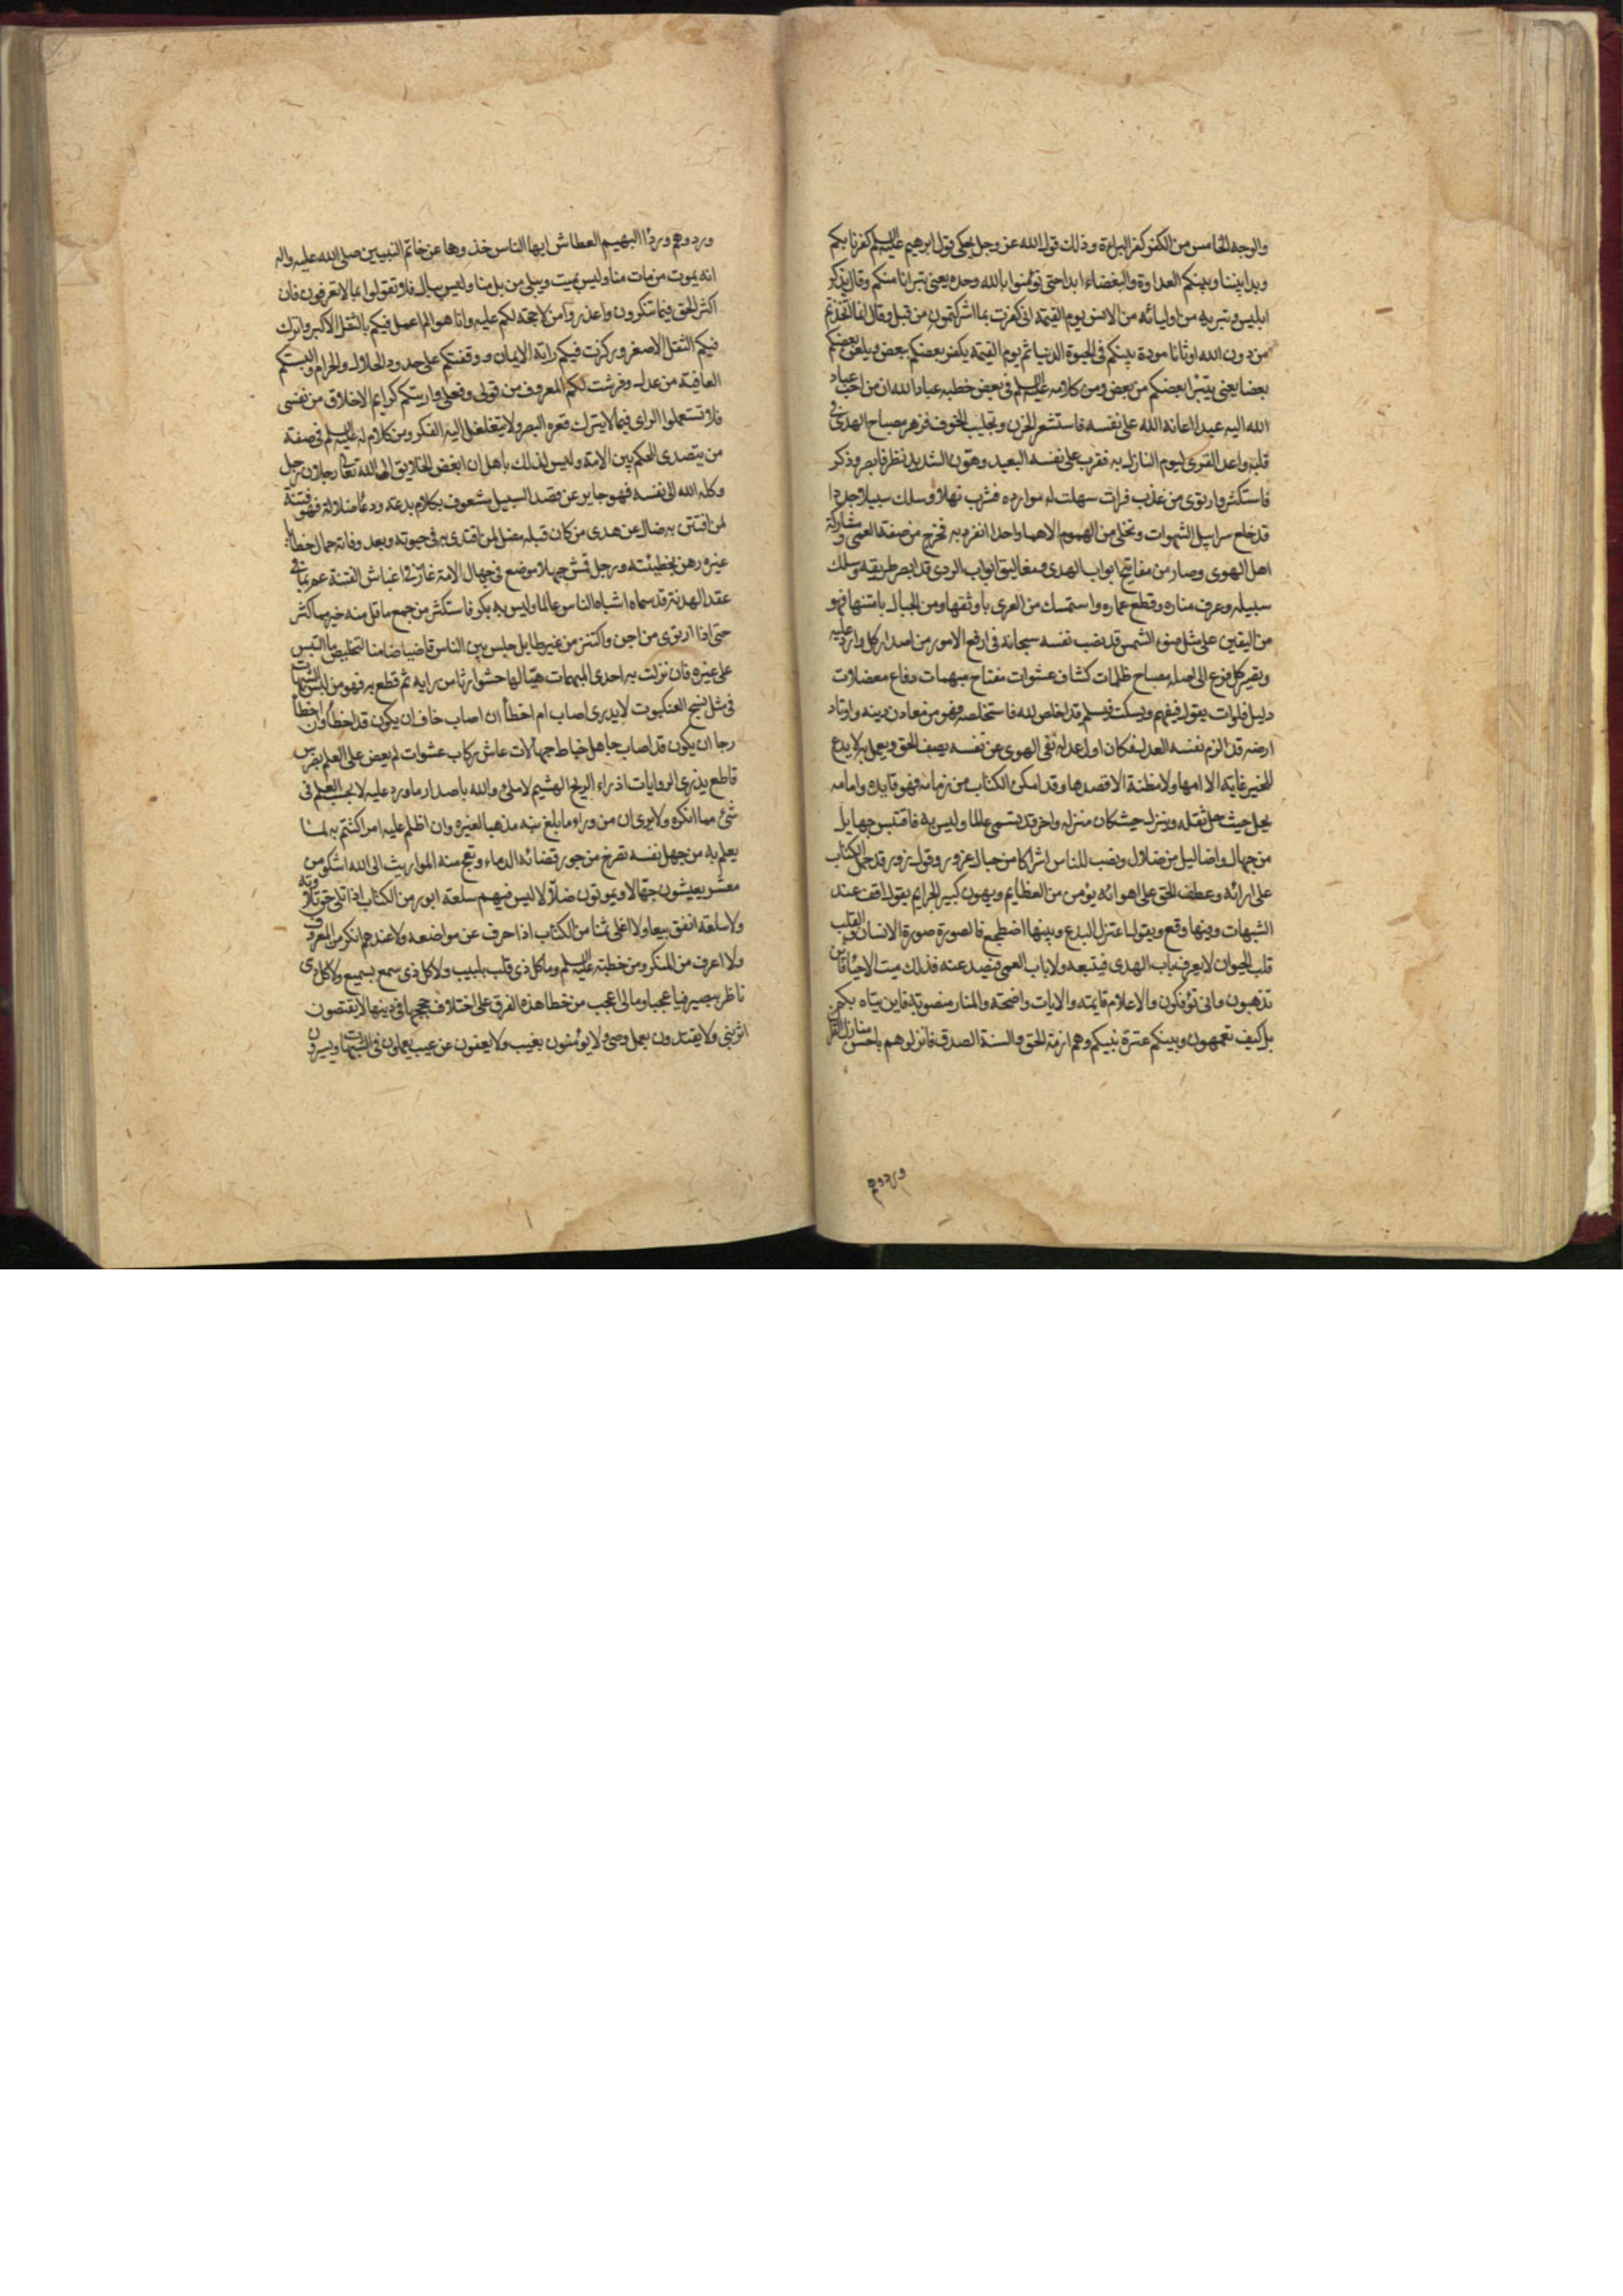 والوجه الخامس من الكفر كفر البراءة وذلك قول الله عز وجل يحكى قول ابرهيم عليه السلم كفرنا بكم
وبدا بيننا وبينكم العداوة والبغضاء ابدا حتى تؤمنوا بالله وحده يعنى تبرانا منكم وقال يذكر
ابليس وتبريه من اوليائه من الانس يوم القيمة انى كفرت بما اشركتمون من قبل وقال انما اتخذتم
من دون الله اوثانا مودة بينكم فى الحيوة الدنيا ثم يوم القيمة يكفر بعضكم ببعض ويلعن بعضكم
بعضا يعنى يتبرا بعضكم من بعض ومن كلامه عليه السلم فى بعض خطبه عباد الله ان من احب عباد
الله اليه عبدا اعانه الله على نفسه فاستشعر الحزن وتجلبب الخوف فزهر مصباح الهدى فى
قلبه واعد القرى ليوم النازل به فقرب على نفسه البعيد وهون الشديد نظر فابصر وذكر
فاستكثر وارتوى من عذب فرات سهلت له موارده فشرب نهلا وسلك سبيلا جددا
قد خلع سرابيل الشهوات وتخلى من الهموم الا هما واحدا انفرد به فخرج من صفة العمى ومشاركة
اهل الهوى وصار من مفاتيح ابواب الهدى ومغاليق ابواب الردى قد ابصر طريقه وسلك
سبيله وعرف مناره وقطع غماره واستمسك من العرى باوثقها ومن الجبال بامتنها فهو
من اليقين على مثل ضوء الشمس قد نصب نفسه سبحانه فى ارفع الامور من اصدار كل وارد عليه
وتصيير كل فرع الى اصله مصباح ظلمات كشاف عشوات مفتاح مبهمات دفاع معضلات
دليل فلوات يقول فيفهم ويسكت فيسلم قد اخلص لله فاستخلصه فهو من معادن دينه واوتاد
ارضه قد الزم نفسه العدل فكان اول عدله نفى الهوى عن نفسه يصف الحق ويعمل به لا يدع
للخير غاية الا امها ولا مظنة الا قصدها وقد امكن الكتاب من زمامه فهو قايده وامامه
يحل حيث حل ثقله وينزل حيث كان منزله واخر قد يتسمى عالما وليس به فاقتبس جهايل
من جهال واضاليل من ضلال ونصب للناس اشراكا من حبال غرور وقول زور قد حمل الكتاب
على ارائه وعطف الحق على اهوائه يؤمن من العظايم ويهون كبير الجرايم يقول اقف عند
الشبهات وفيها وقع ويقول اعتزل البدع وبينها اضطجع فالصورة صورة الانسان والقلب
قلب الحيوان لا يعرف باب الهدى فيتبعه ولا باب العمى فيصد عنه فذلك ميت الاحياء فاين
تذهبون وانى تؤفكون والاعلام قايمة والايات واضحة والمنار منصوبة فاين يتاه بكم
بل كيف تعمهون وبينكم عترة نبيكم وهم ازمة الحق والسنة الصدق فانزلوهم باحسن منازل القران
وردوهم
وردوهم ورودا البهيم العطاش ايها الناس خذوها عن خاتم النبيين صلى الله عليه واله
انه يموت من مات منا وليس بميت ويبلى من بلى منا وليس ببال فلا تقولوا بما لا تعرفون فان
اكثر الحق فيما تنكرون واعذروا من لا حجة لكم عليه وانا هو الم اعمل فيكم بالثقل الاكبر واترك
فيكم الثقل الاصغر وركزت فيكم راية الايمان ووقفتكم على حدود الحلال والحرام والبستكم
العافية من عدل وفرشت لكم المعروف من قولى وفعلى واريتكم كرايم الاخلاق من نفسى
فلا تستعملوا الراى فيما لا يدرك قعره البصر ولا يتغلغل اليه الفكر ومن كلام له عليه السلم فى صفة
من يتصدى الحكم بين الامة وليس لذلك باهل ان ابغض الخلايق الى الله تعالى رجلان رجل
وكله الله الى نفسه فهو جاير عن قصد السبيل مشعوف بكلام بدعة ودعاء ضلالة فهو فتنة
لمن افتتن به ضال عن هدى من كان قبله مضل لمن اقتدى به فى حيوته وبعد وفاته حمال خطايا
غيره رهن بخطيئته ورجل قمش جهلا موضع فى جهال الامة غار فى اغباش الفتنة عم بما فى
عقد الهدنة قد سماه اشباه الناس عالما وليس به بكر فاستكثر من جمع ما قل منه خير مما كثر
حتى اذا ارتوى من اجن واكتنز من غير طايل جلس بين الناس قاضيا ضامنا لتخليص ما التبس
على غيره فان نزلت به احدى المبهمات هيا لها حشوا رثا من رايه ثم قطع به فهو من لبس الشبهات
فى مثل نسج العنكبوت لا يدرى اصاب ام اخطأ ان اصاب خاف ان يكون قد اخطأ وان اخطأ
رجا ان يكون قد اصاب جاهل خباط جهالات عاش ركاب عشوات لم يعض على العلم بضرس
قاطع يذرى الروايات اذراء الريح الهشيم لا ملئ والله باصدار ما ورد عليه لا يحسب العلم فى
شئ مما انكره ولا يرى ان من وراء ما بلغ منه مذهبا لغيره وان اظلم عليه امر اكتتم به لما
يعلم به من جهل نفسه تصرخ من جور قضائه الدماء وتعج منه المواريث الى الله اشكو من
معشر يعيشون جهالا ويموتون ضلالا ليس فيهم سلعة ابور من الكتاب اذا تلى حق تلاوته
ولا سلعة انفق بيعا ولا اغلى ثمنا من الكتاب اذا حرف عن مواضعه ولا عندهم انكر من المعروف
ولا اعرف من المنكر ومن خطبته عليه السلم وما كل ذى قلب بلبيب ولا كل ذى سمع بسميع ولا كل ذى
ناظر ببصير فيا عجبا وما لى لا اعجب من خطا هذه الفرق على اختلاف حججها فى دينها لا يقتصون
اثر نبى ولا يقتدون بعمل وصى ولا يؤمنون بغيب ولا يعفون عن عيب يعملون فى الشبهات ويسيرون